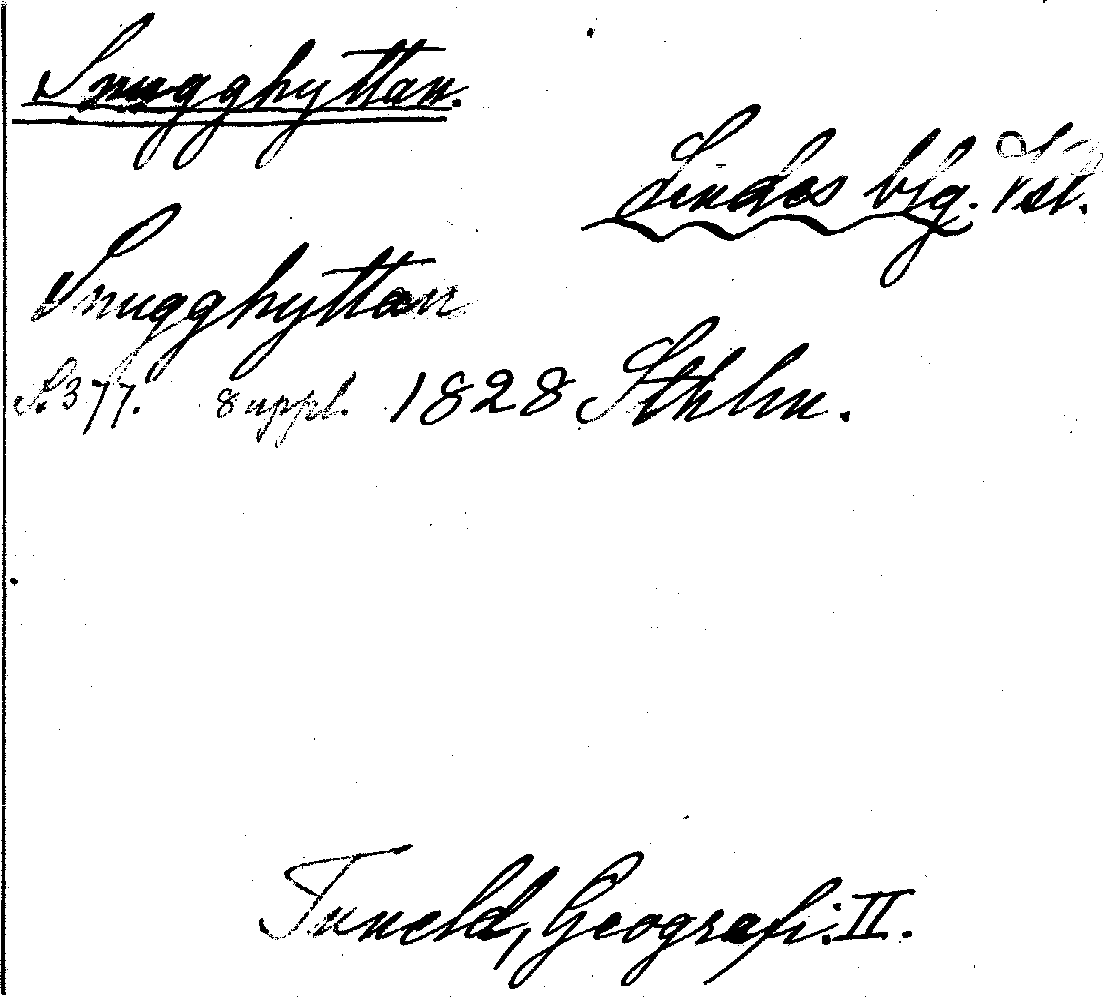 Snugghyttan.
Lindes blg. Vsl.
Snugghyttan
S. 377. 8 uppl. 1828 Sthlm.
Tuneld, Geografi. II.